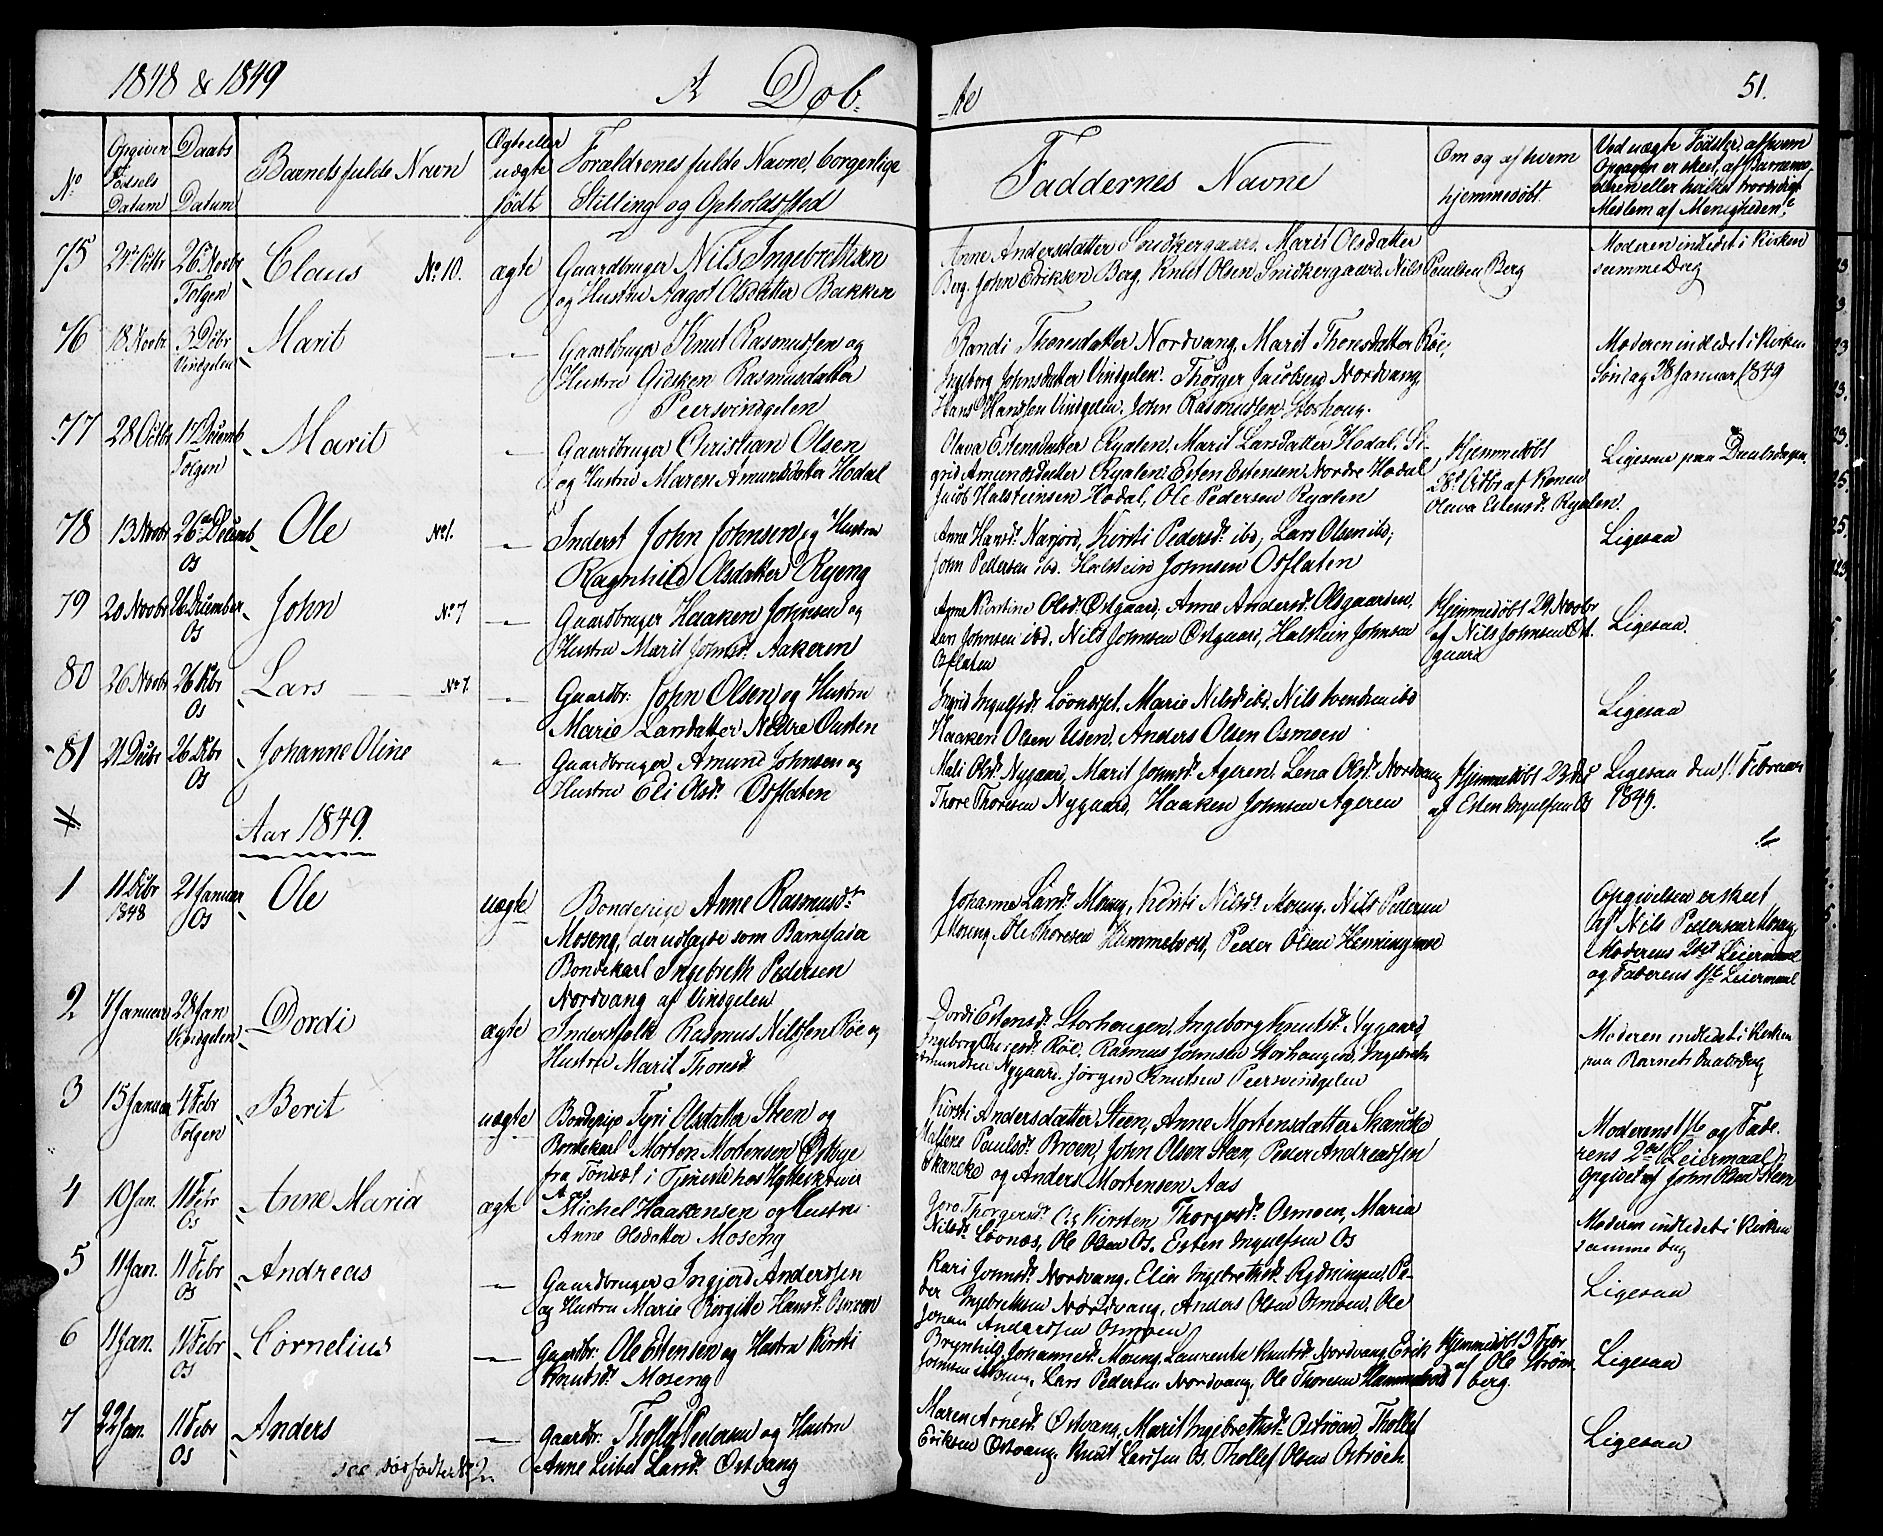 1848 & 1849
A Døb-
-te
51.
No
Opgiven Fødsels Datum
Daabs Datum
Barnets fulde Navn
Ægte eller uægte født
Forældrenes fulde Navne, borgerlige
Stilling og Opholdssted
Faddernes Navne
Om og af hvem
hjemmedøbt
Ved uægte Fødsler, af hvem
Opgaven er skeet, af
Medlem af Menigheden?
75 24de Octbr 26de Novbr Tolgen Claus No 10. ægte
Gaardbruger Nils Ingebrethsen
og Hustru Aagot Olsdatter Bakken
Anne Andersdatter Snidkergaard, Marit Olsdatter
Berg, John Eriksen Berg, Knut Olsen Snidkergaard, Nils Poulsen Berg
Moderen indledet i Kirken
samme Dag
76 18 Novbr 3 Dcbr Vindgelen Marit
Gaardbruger Knut Rasmussen og
Hustru Gidsken Rasmusdatter
Peersvindgelen
Randi Thoresdatter Nordvang, Marit Thorsdatter Røe,
Ingeborg Johnsdatter Vindgelen, Thorger Jacobsen Nordvang,
Hans Hansen Vindgelen, John Rasmussen Storhoug.
Moderen indledet i Kirken
Søndag 28 Januar 1849
77 28 Octbr 17 Decemb Tolgen Marit
Gaardbruger Christian Olsen
og Hustru Maren Amundsdatter Hodal
Olava Estensdatter Ryalen, Marit Larsdatter Hodal, Si-
grid Amundsdatter Ryalen, Esten Estensen Nordre Hodal,
Jacob Halsteinsen Hodal, Ole Pedersen Ryalen
Hjemmedøbt
28de Octbr af Konen
Olava Estensd. Ryalen.
Ligesaa paa Daabsdagen
78 13 Novbr 26de Decemb Os Ole No 1.
Inderst John Johnsen og Hustru
Ragnhild Olsdatter Ryeng
Anne Hansd. Narjord, Kirsti Pedersd. ibd, Lars Olsen ibd,
John Pedersen ibd. Halstein Johnsen Osflaten
Ligesaa
79 20 Novbr 26 December Os John No 7
Gaardbruger Haaken Johnsen og
Hustru Marit Johnsd. Aakeren
Anne Kirstine Olsd. Østgaard, Anne Andersd. Olsgaarden,
Jan Johnsen ibd. Nils Johnsen Østgaard, Halstein Johnsen
Osflaten
Hjemmedøbt 29 Novbr
af Nils Johnsen Øst-
gaard
Ligesaa.
80 26 Novbr 26 Dcbr Os Lars No 7.
Gaardbr: John Olsen og Hustru
Marie Larsdatter Nedre
Ingrid Ingulfsd. Løvnæset, Marie Nilsd. ibd, Nils Svendsen ibd
Haaken Olsen Usen, Anders Olsen Osmoen
Ligesaa
81 21 Decbr 26 Dcbr Os Johanne Oline
Gaardbruger Amund Johnsen og
Hustru Eli Olsd. Osflaten
Mali Olsd. Nygaard, Marit Johnsd. Ageren, Lena Olsd. Nordvang
Thore Thoresen Nygaard, Haaken Johnsen Ageren
Hjemmedøbt 23 Dec
af Esten Ingulfsen Os
Ligesaa den 1. Februar
1849.
Aar 1849.
1 11 Dcbr 1848 21 Januar Os Ole uægte
Bondepige Anne Rasmusd.
Moseng, der udlagde som Barnefader
Bondekarl Ingebreth Pedersen
Nordvang af Vindgelen
Johanne Larsd. Moseng, Kirsti Nilsd. Moseng, Nils Pedersen
Moseng, Ole Thoresen Hummelvold, Peder Olsen Hemingmoe
Opgivelsen er skeet
af Nils Pedersen Moseng,
Moderens 2det Leiermaal
og Faderens 1ste Leiermaal
2 7 Januar 28 Jan Vindgelen Dordi ægte
Inderstfolk Rasmus Nilssen Røe og
Hustru Marit Thorsd.
Dordi Estensd. Storhougen, Ingeborg Knutsd. Nygaard,
Ingeborg Thoresd. Røe, Rasmus Johnsen Storhaugen, Ingebreth
Amundsen Nygaard, Jørgen Knutsen Peersvindgelen
Moderen indledet i Kirken
paa Barnets Daabsdag
3 15 Januar 4 Febr Tolgen Berit uægte
Bondepige Tyri Olsdatter Steen og
Bondekarl Morten Mortensen Østbye
fra Tønset i Tjeneste hos
Kirsti Andersdatter Steen, Anne Mortensdatter Skancke
Malfene Poulsd. Broen, John Olsen Steen, Peder Andreassen
Skancke og Anders Mortensen Aas
Moderens 1ste og Fade-
rens 2det Leiermaal
opgivet af John Olsen Steen
4 10 Jan. 11 Febr Os Anne Maria ægte
Michel Haakensen og Hustru
Anne Olsdatter Moseng
Goro Thorgersd. Os, Kirsten Thorgersd. Osmoen, Maria
Nilsd. Løvnæs, Ole Olsen Os, Esten Ingulfsen Os
Moderen indledet i Kirken
samme dag
5 11 Jan. 11 Febr Os Andreas
Gaardbruger Ingjerd Anderssen
og Hustru Marie Birgitte Hansd. Osmoen
Kari Johnsd. Nordvang, Elie Ingebrethsd. Rydningen, Pe-
der Ingebrethsen Nordvang, Anders Olsen Osmoen, Ole
Johan Anderssen Osmoen
Ligesaa
6 11 Jan. 11 Febr Os Cornelius
Gaardbr: Ole Estensen og Hustru Kirsti
Knutsd. Moseng
Brynhild Johannesd. Moseng, Laurentse Knutsd. Nordvang, Erik
Johnsen Moseng, Lars Pedersen Nordvang, Ole Thoresen Hummelvold
Hjemmedøbt 3 Febr.
af Ole Strøm-
berg.
Ligesaa
7 22 Jan. 11 Febr Os Anders
Gaardbr: Thollef Pedersen og Hustru
Anne Lisbet Larsd. Østvang
Maren Arnesd. Østvang, Marit Ingebrethsd. Østrøen, Thollef
Eriksen Østvang, Knut Larssen Os, Thollef Olsen Østrøen
Ligesaa
see dødfødte No 2